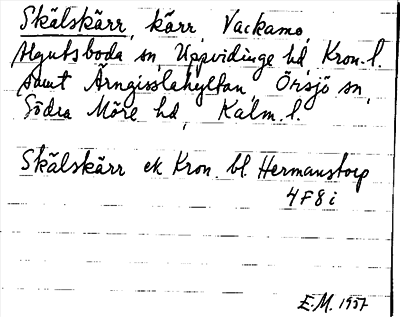 Skälskärr, kärr, Vackamo,
Algutsboda sn, Uppvidinge hd, Kron. l.
samt Ärngisslahyltan, Örsjö sn,
Södra Möre hd, Kalm. l.
Skälskärr ek Kron. bl. Hermanstorp
4F8i
E.M. 1957